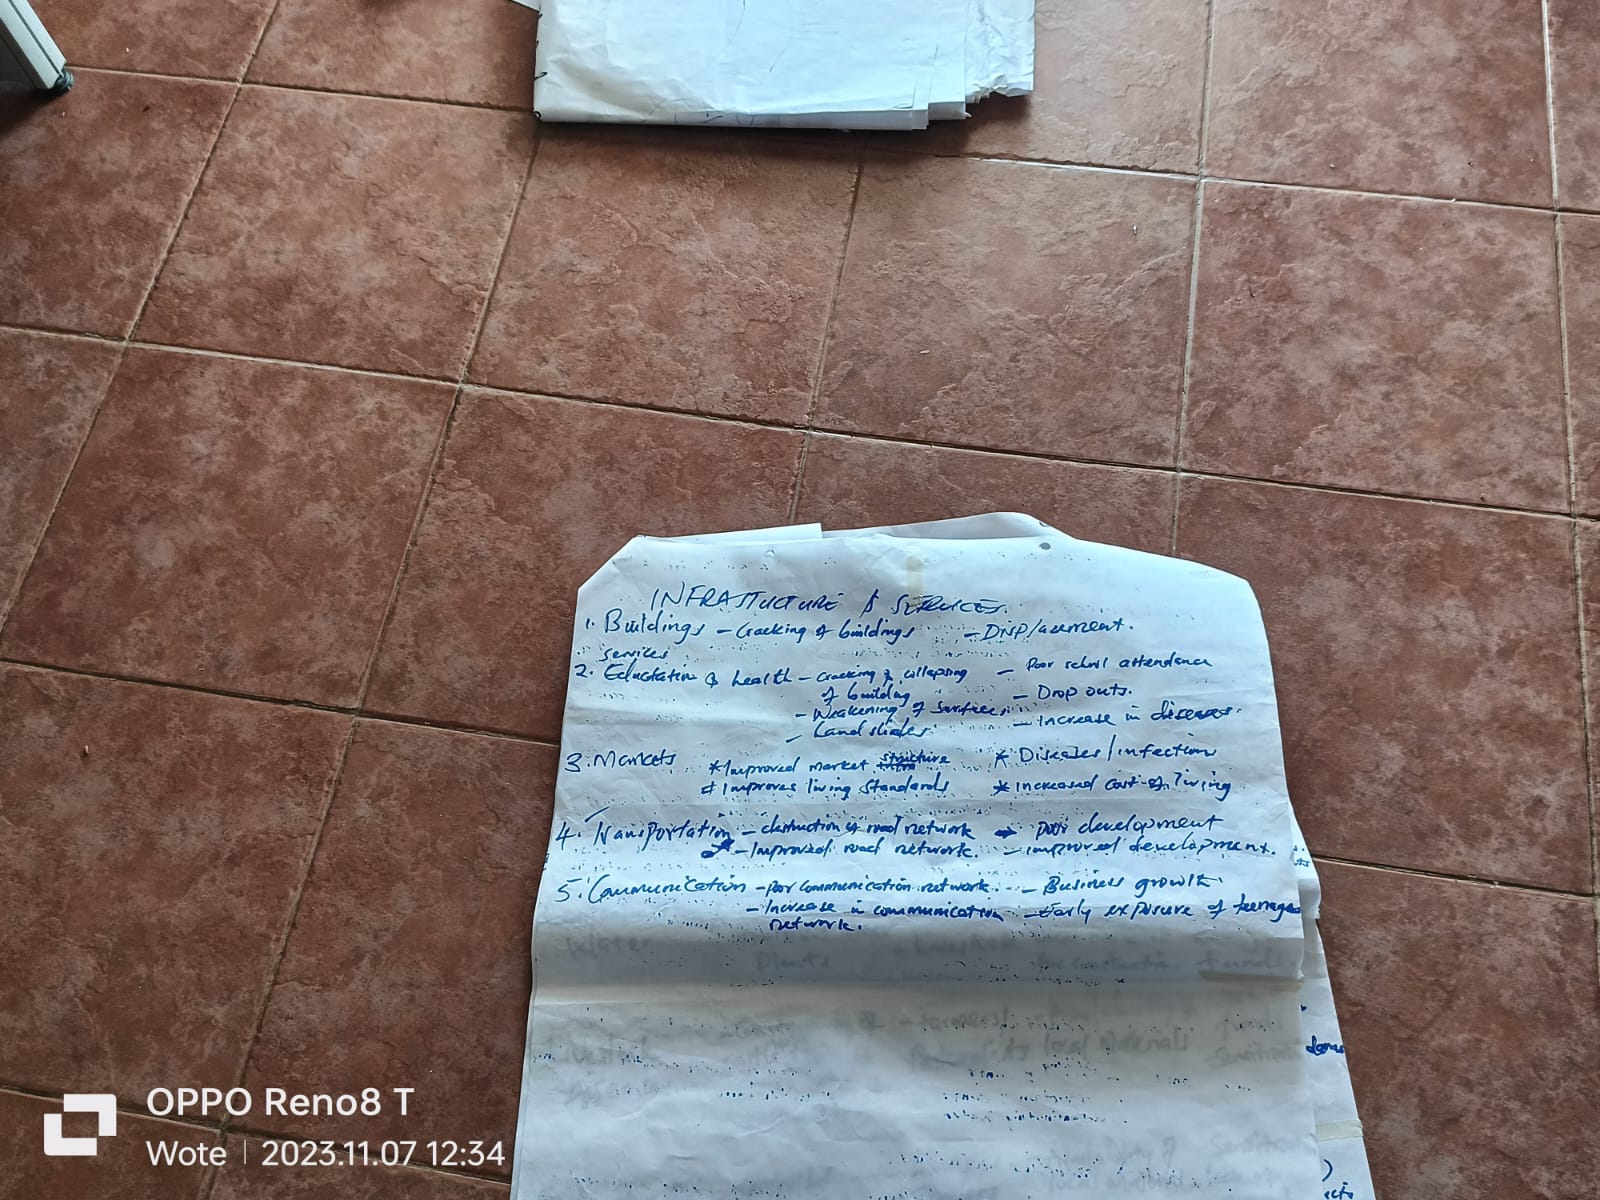 INFRASTUCTURE & SERVICES.
1. Buildings - Cracking of buildings - Displacement.
services
2. Eductation & health - cracking & collapsing - Poor school attendance
of building - Drop outs.
- Weakening of surfaces - Increase in diseases.
- Landslides
3. Markets * Improved market structure * Diseases/infection
# Improves living standards * increased cost of living
4. Transportation - destruction of road network poor development
- Improved road network. - improved development.
5. Communication - Poor communication network. - Business growth.
- Increase in communication - Early exposure of teenage
network.
OPPO Reno8 T
Wote | 2023.11.07 12:34